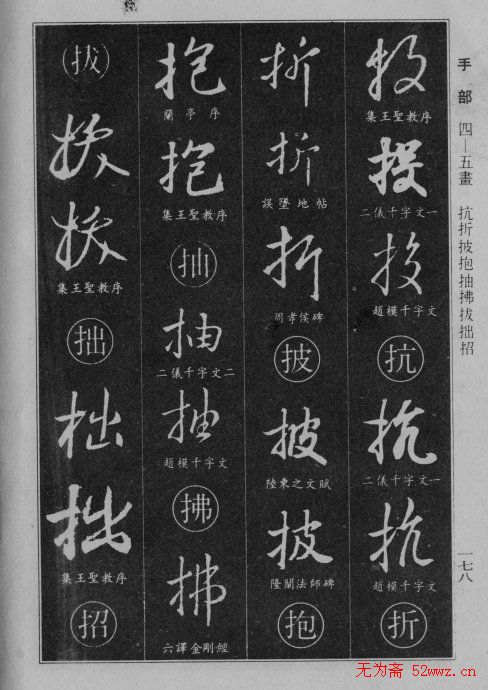 手部 四—五畫 抗折披抱抽拂拔拙招
一七八
投
集王聖教序
投
二儀千字文一
投
趙模千字文
抗
抗
二儀千字文一
抗
趙模千字文
折
折
折
誤墜地帖
折
周孝侯碑
披
披
陸柬之文賦
披
隆闡法師碑
抱
抱
蘭亭序
抱
集王聖教序
抽
抽
二儀千字文二
抽
趙模千字文
拂
拂
六譯金剛經
拔
拔
拔
集王聖教序
拙
拙
拙
集王聖教序
招
无为斋 52wwz.cn